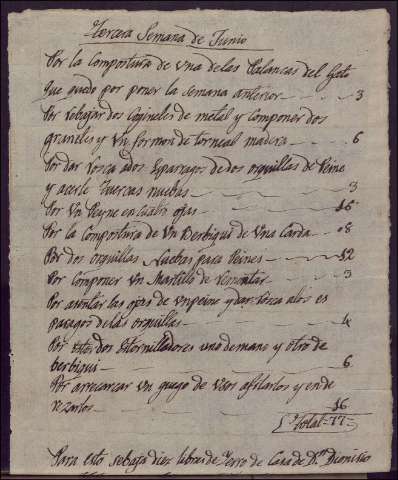 Tercera Semana de Junio
Por la Compostura de una delas Palancas del Gato
que quedo por poner la semana anterior 3
Por rebajar dos Cogineles de metal y componer dos
graneles y un formon de tornear madera 6
Por dar rosca ados Esparragos de dos orquillas de Peine
y acerle tuercas nuebas 3
Por un Peyne en cuatro ojas 16
Por la Compostura de un Berbiqui de una Carda 8
Por dos orquillas Nuebas para Peines 12
Por componer un Martillo de remontar 3
Por asentar las ojas de un peine y dar rosca alos es
paragos de las orquillas 4
Por dos Estornilladores uno demano y otro de
berbiqui 6
Por arrecarcar un guego de usos afilarlos y ende
rezarlos 16
Total 77
Para esto sebaja diez libras de Yerro de Casa de Dn Dionisio